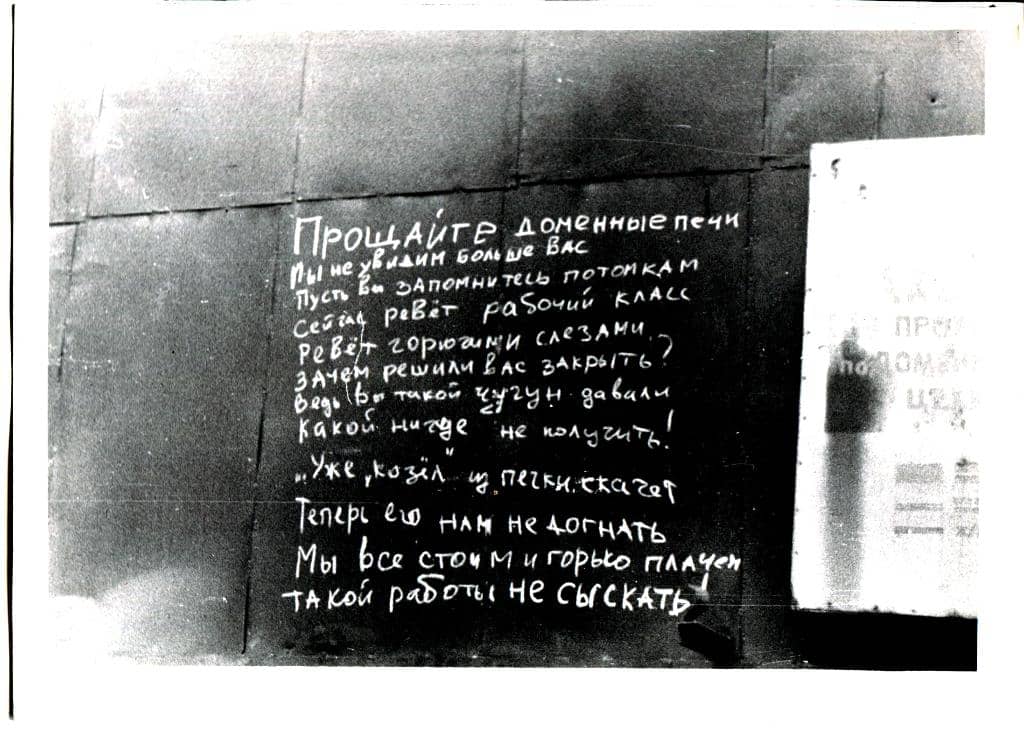 Прощайте доменные печи
Мы не увидим больше Вас
Пусть Вы запомнитесь потомкам
Сейчас ревёт рабочий класс
Ревёт горючими слезами
Зачем решили Вас закрыть?
Ведь Вы такой чугун давали
Какой нигде не получить!
„Уже „козёл" из печки скачет
Теперь его нам не догнать
Мы все стоим и горько плачем
Такой работы не сыскать